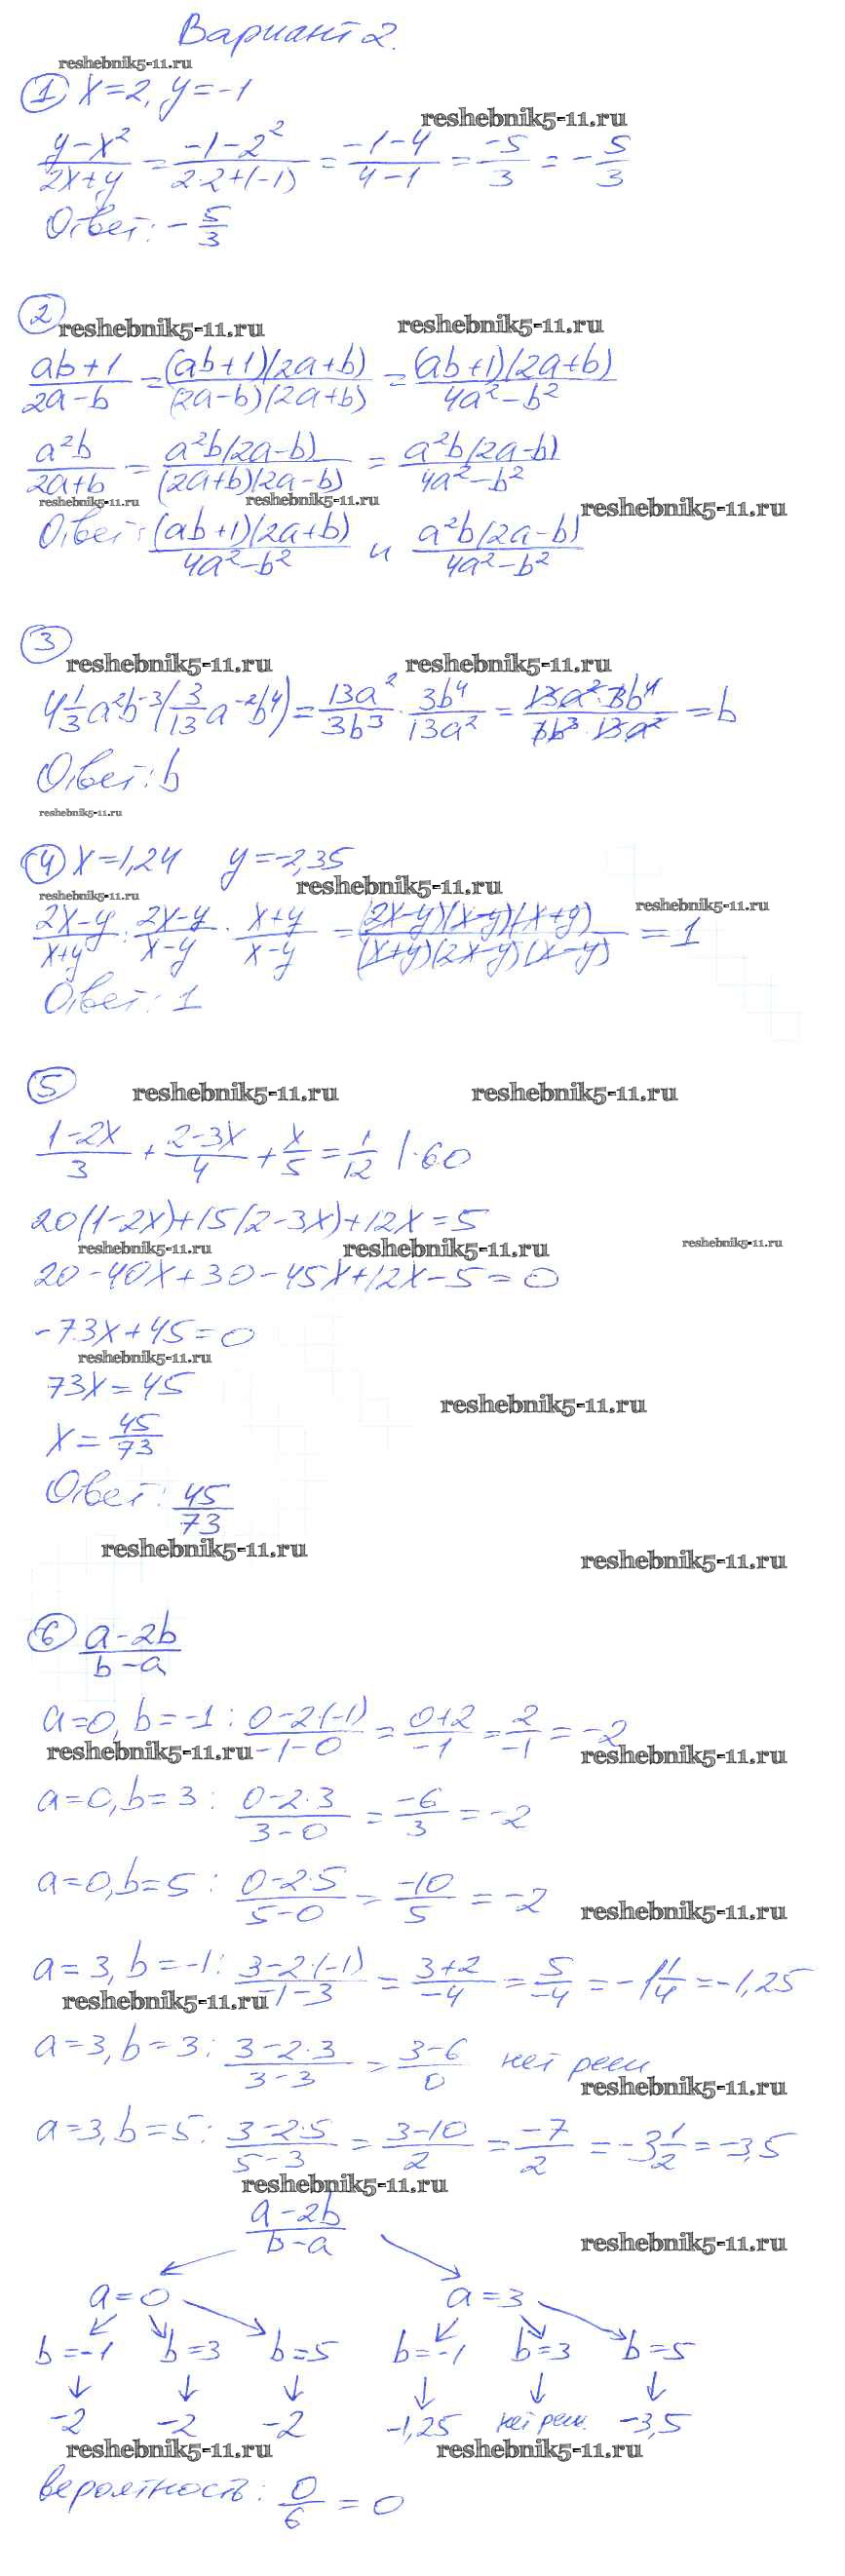 Вариант 2.
reshebnik5-11.ru
① x=2, y=-1
reshebnik5-11.ru
(y-x²)/(2x+y) = (-1-2²)/(2·2+(-1)) = (-1-4)/(4-1) = -5/3 = -5/3
Ответ: -5/3
②
reshebnik5-11.ru reshebnik5-11.ru
(ab+1)/(2a-b) = (ab+1)(2a+b)/(2a-b)(2a+b) = (ab+1)(2a+b)/(4a²-b²)
a²b/(2a+b) = a²b(2a-b)/(2a+b)(2a-b) = a²b(2a-b)/(4a²-b²)
reshebnik5-11.ru reshebnik5-11.ru reshebnik5-11.ru
Ответ: (ab+1)(2a+b)/(4a²-b²) и a²b(2a-b)/(4a²-b²)
③
reshebnik5-11.ru reshebnik5-11.ru
4 1/3 a²b⁻³(3/13 a⁻²b⁴) = 13a²/3b³ · 3b⁴/13a² = 13a²·3b⁴/3b³·13a² = b
Ответ: b
reshebnik5-11.ru
④ x=1,24 y=-2,35
reshebnik5-11.ru reshebnik5-11.ru reshebnik5-11.ru
(2x-y)/(x+y) : (2x-y)/(x-y) · (x+y)/(x-y) = (2x-y)(x-y)(x+y)/(x+y)(2x-y)(x-y) = 1
Ответ: 1
⑤
reshebnik5-11.ru reshebnik5-11.ru
(1-2x)/3 + (2-3x)/4 + x/5 = 1/12 |·60
20(1-2x)+15(2-3x)+12x=5
reshebnik5-11.ru reshebnik5-11.ru reshebnik5-11.ru
20-40x+30-45x+12x-5=0
-73x+45=0
reshebnik5-11.ru
73x=45
reshebnik5-11.ru
x=45/73
Ответ: 45/73
reshebnik5-11.ru reshebnik5-11.ru
⑥ (a-2b)/(b-a)
a=0, b=-1: (0-2·(-1))/(-1-0) = (0+2)/-1 = 2/-1 = -2
reshebnik5-11.ru reshebnik5-11.ru
a=0, b=3: (0-2·3)/(3-0) = -6/3 = -2
a=0, b=5: (0-2·5)/(5-0) = -10/5 = -2
reshebnik5-11.ru
a=3, b=-1: (3-2·(-1))/(-1-3) = (3+2)/-4 = 5/-4 = -1 1/4 = -1,25
reshebnik5-11.ru
a=3, b=3: (3-2·3)/(3-3) = (3-6)/0 нет реш
reshebnik5-11.ru
a=3, b=5: (3-2·5)/(5-3) = (3-10)/2 = -7/2 = -3 1/2 = -3,5
reshebnik5-11.ru
(a-2b)/(b-a)
reshebnik5-11.ru
a=0 a=3
b=-1 b=3 b=5 b=-1 b=3 b=5
-2 -2 -2 -1,25 нет реш. -3,5
reshebnik5-11.ru reshebnik5-11.ru
вероятность: 0/6 = 0